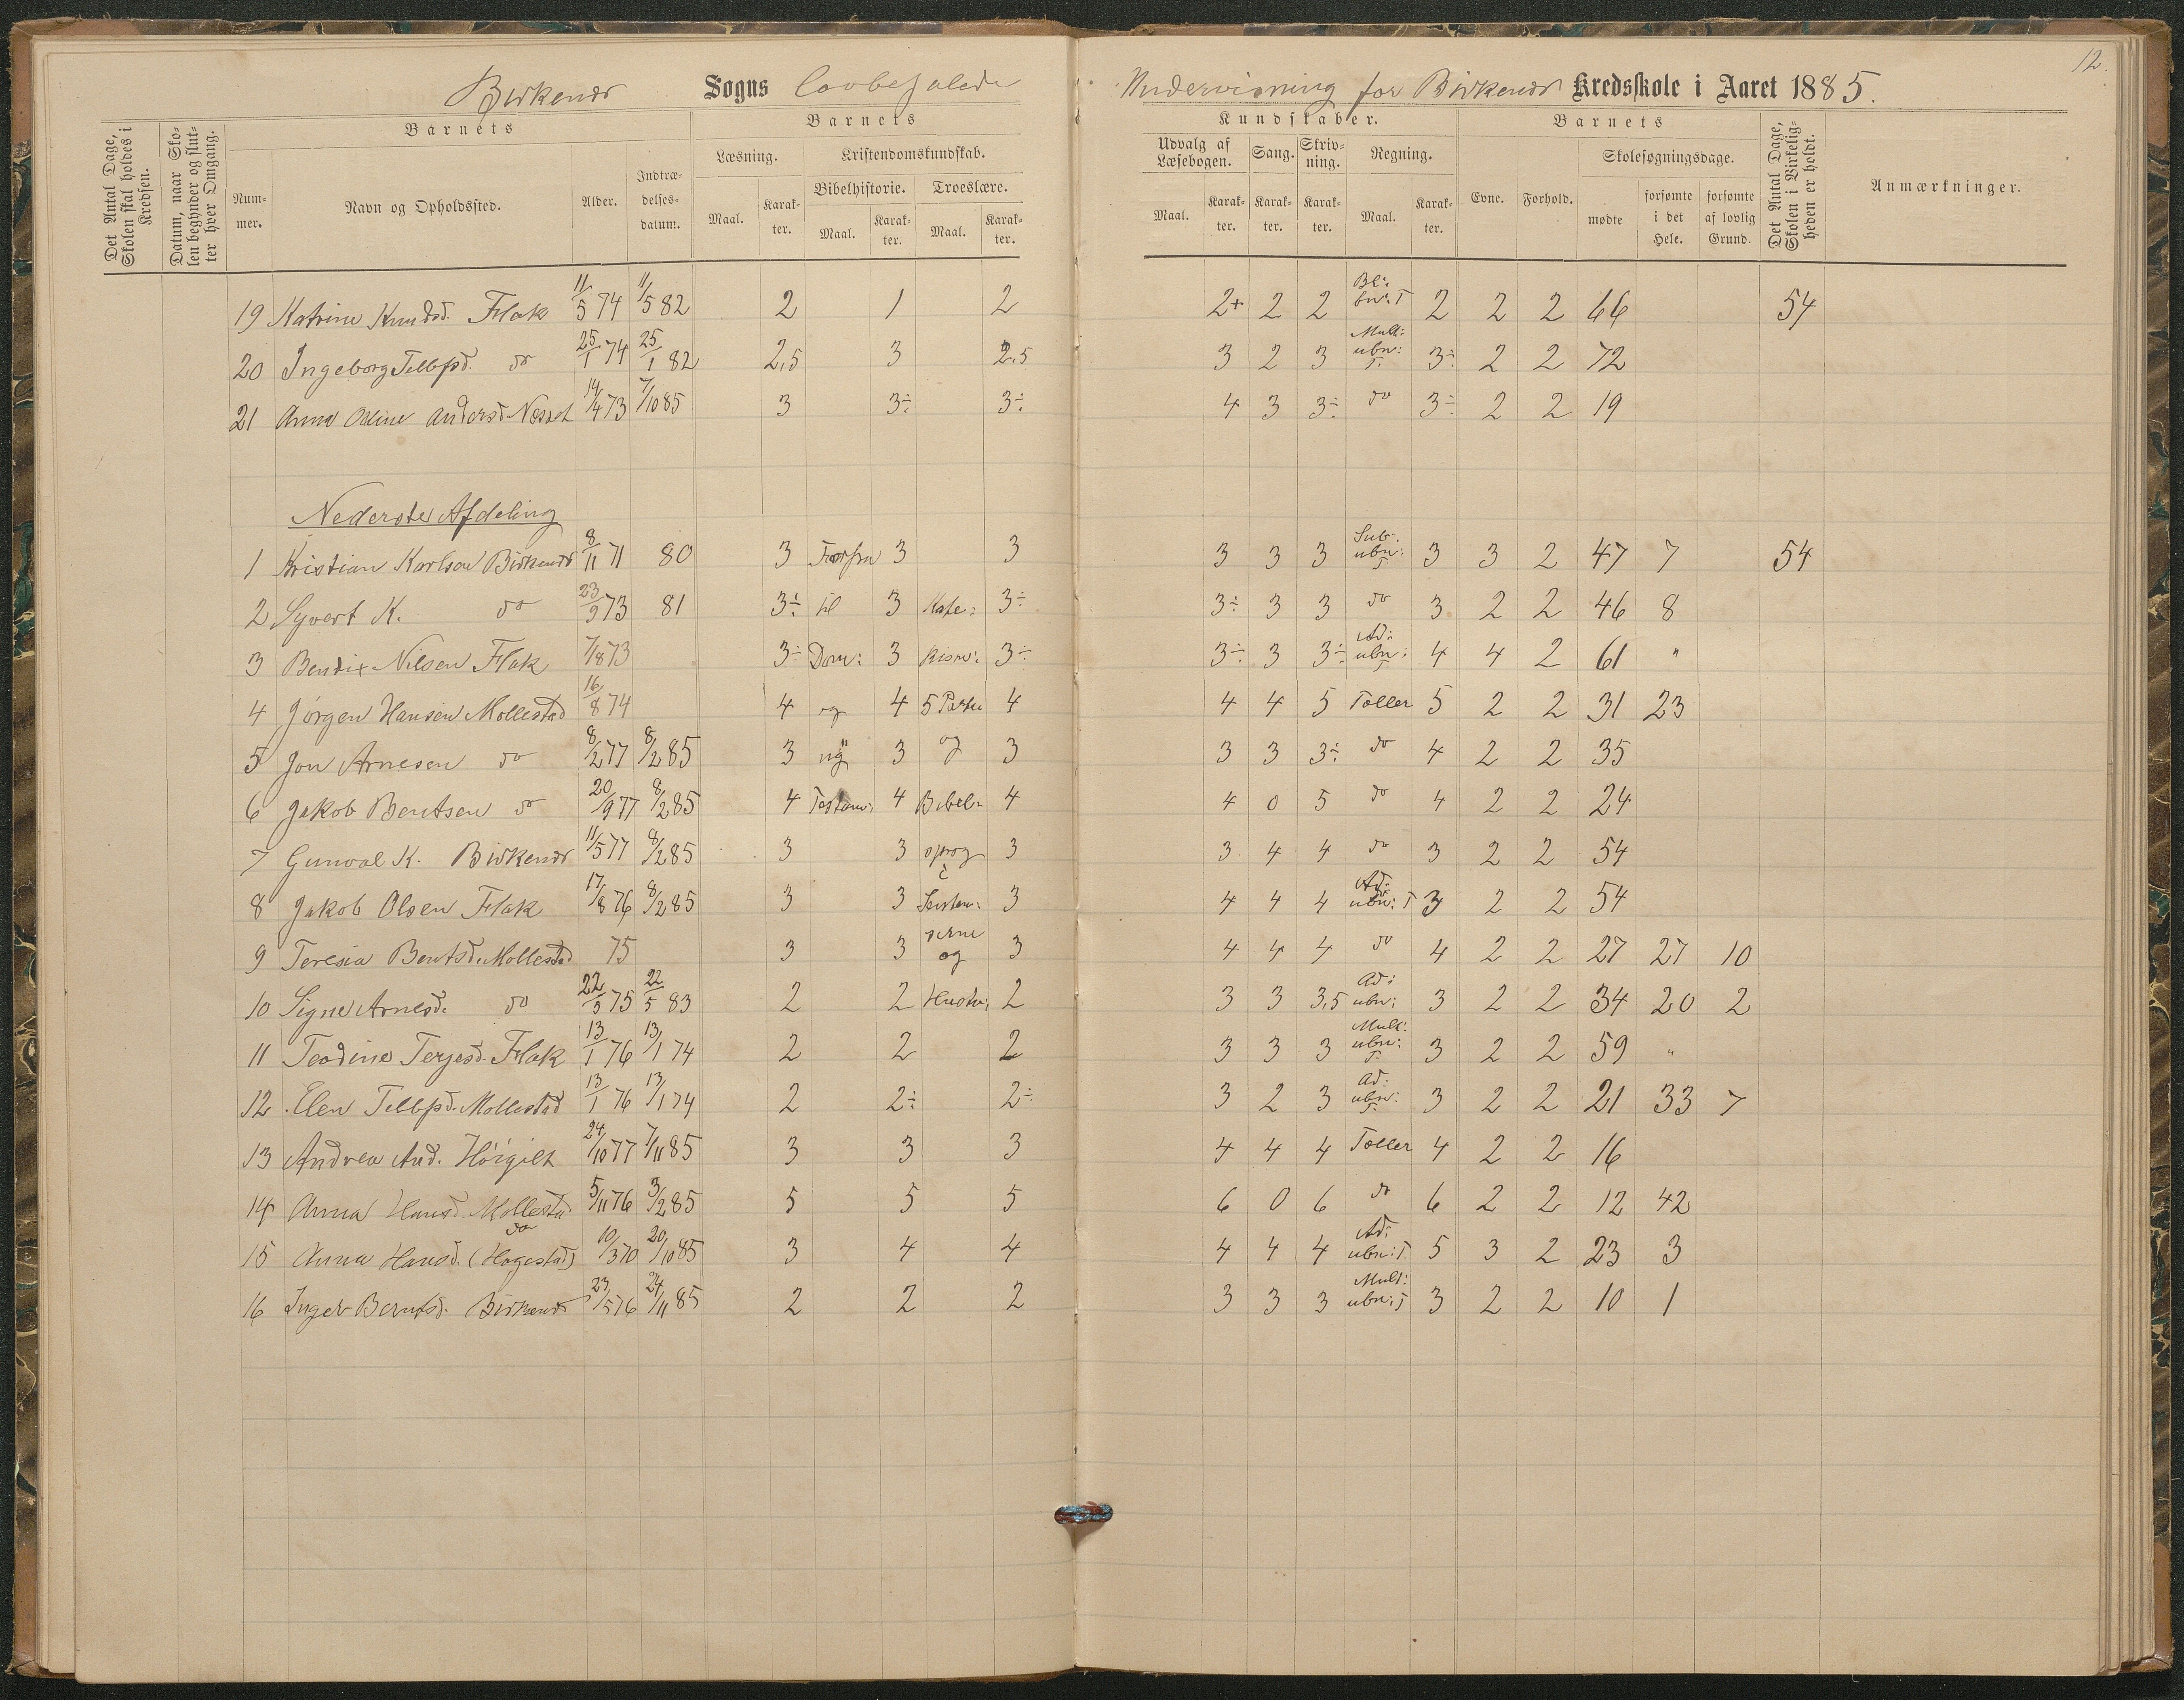 12.
Birkenes Sogns lovbefalede Undervisning for Birkenes Kredsskole i Aaret 1885.
Det Antal Dage, Skolen skal holdes i Kredsen.
Datum, naar Skolen begynder og slutter hver Omgang.
Barnets
Nummer.
Navn og Opholdssted.
Alder.
Indtrædelsesdatum.
Barnets Kundskaber.
Læsning. Kristendomskundskab. Udvalg af Læsebogen. Sang. Skrivning. Regning.
Bibelhistorie. Troeslære.
Maal. Karakter. Maal. Karakter. Maal. Karakter. Maal. Karakter. Karakter. Karakter. Maal. Karakter.
Barnets
Evne. Forhold. Skolesøgningsdage.
mødte forsømte i det Hele. forsømte af lovlig Grund.
Det Antal Dage, Skolen i Virkeligheden er holdt.
Anmærkninger.
19 Katrine Knudsd. Flak 11/5 74 11/5 82 2 1 2 2+ 2 2 2 2 2 66 54
20 Ingeborg Tellefsd. do 25/1 74 25/1 82 2,5 3 2,5 3 2 3 Mult: ubn: T. 3÷ 2 2 72
21 Anna Oline Andersd. Næset 14/4 73 7/10 85 3 3÷ 3÷ 4 3 3÷ do 3÷ 2 2 19
Nederste Afdeling
1 Kristian Karlsen Birkenes 8/11 71 80 3 Forfra 3 3 3 3 3 Sub. ubn: T. 3 3 2 47 7 54
2 Syvert K. do 23/9 73 81 3÷ til 3 Kate: 3÷ 3÷ 3 3 do 3 2 2 46 8
3 Bendix Nilsen Flak 7/8 73 3÷ Dom: 3 kism: 3÷ 3÷ 3 3÷ Ad: ubn: T. 4 4 2 61 "
4 Jörgen Hansen Mollestad 16/8 74 4 og 4 5 Parter 4 4 4 5 Taller 5 2 2 31 23
5 Jon Arnesen do 8/2 77 8/2 85 3 3 og 3 3 3 3÷ do 4 2 2 35
6 Jakob Bentsen do 20/9 77 8/2 85 4 Testam: 4 Bibel- 4 4 0 5 do 4 2 2 24
7 Gunval K. Birkenes 11/5 77 8/2 85 3 3 sprog 3 3 4 4 do 3 2 2 54
8 Jakob Olsen Flak 17/8 76 8/2 85 3 3 3 4 4 4 Ad: ubn: T 3 2 2 54
9 Teresia Bentsd. Mollestad 75 3 3 perne og 3 4 4 4 do 4 2 2 27 27 10
10 Signe Arnesd. do 22/5 75 22/5 83 2 2 Hustv: 2 3 3 3,5 Ad: ubn: 3 2 2 34 20 2
11 Teodine Terjesd. Flak 13/1 76 13/1 74 2 2 2 3 3 3 Mult: ubn: T. 3 2 2 59 "
12 Elen Tellefsd. Mollestad 13/1 76 13/1 74 2 2÷ 2÷ 3 2 3 Ad: ubn: T. 3 2 2 21 33 7
13 Andrea And. Höigilt 24/10 77 7/11 85 3 3 3 4 4 4 Taller 4 2 2 16
14 Anna Hansd. Mollestad 5/11 76 3/2 85 5 5 5 6 0 6 do 6 2 2 12 42
15 Anna Hansd. do (Hagestad) 10/3 70 20/10 85 3 4 4 4 4 4 Ad: ubn: T. 5 3 2 23 3
16 Inger Berntsd. Birkenes 23/5 76 24/11 85 2 2 2 3 3 3 Mult: ubn: T 3 2 2 10 1